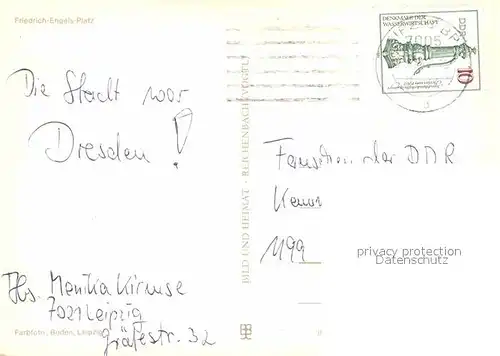 Friedrich-Engels-Platz
Die Stadt war
Dresden!
Abs. Monika Kirmse
7021 Leipzig
Gräfestr. 32
Farbfoto: Boden, Leipzig
BILD UND HEIMAT · REICHENBACH (VOGTL)
DENKMALE DER
WASSERWIRTSCHAFT
DDR
10
7005
Fernsehen der DDR
1199
privacy protection
Datenschutz